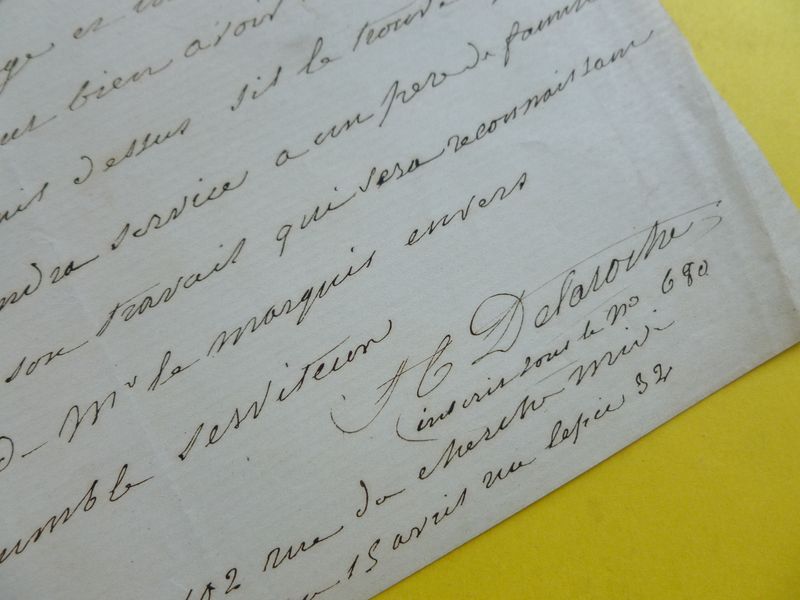 bien avoir
dessus sil le trouve
service a un pere de famill
son travail qui sera reconnaissan
Mr le marquis envers
umble serviteur
A C Delaroche
(inscrit sous le no 680
102 rue du cherche midi
15 avril rue lepic 32